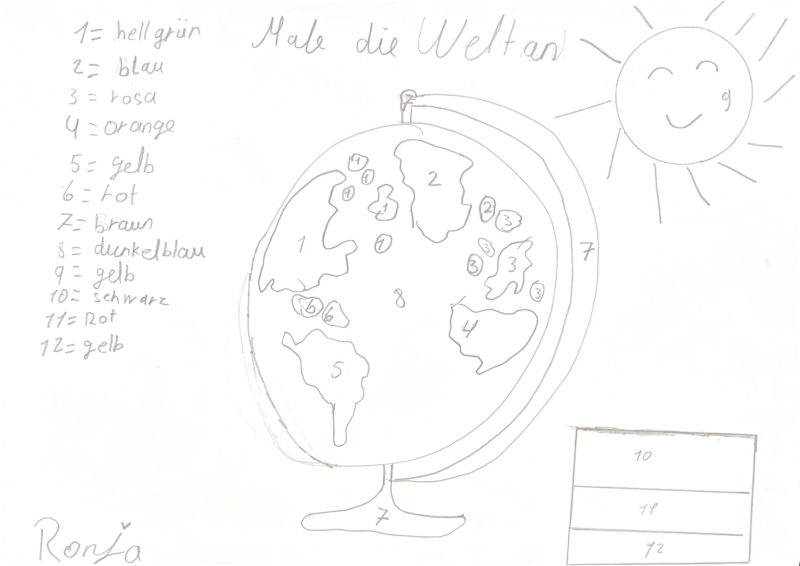 Male die Welt an
1 = hellgrün
2 = blau
3 = rosa
4 = orange
5 = gelb
6 = rot
7 = Braun
8 = dunkelblau
9 = gelb
10 = schwarz
11 = Rot
12 = gelb
9
7
1
1
1
1
1
2
2
3
3
3
3
3
1
7
8
6
6
4
5
7
10
11
12
Ronja